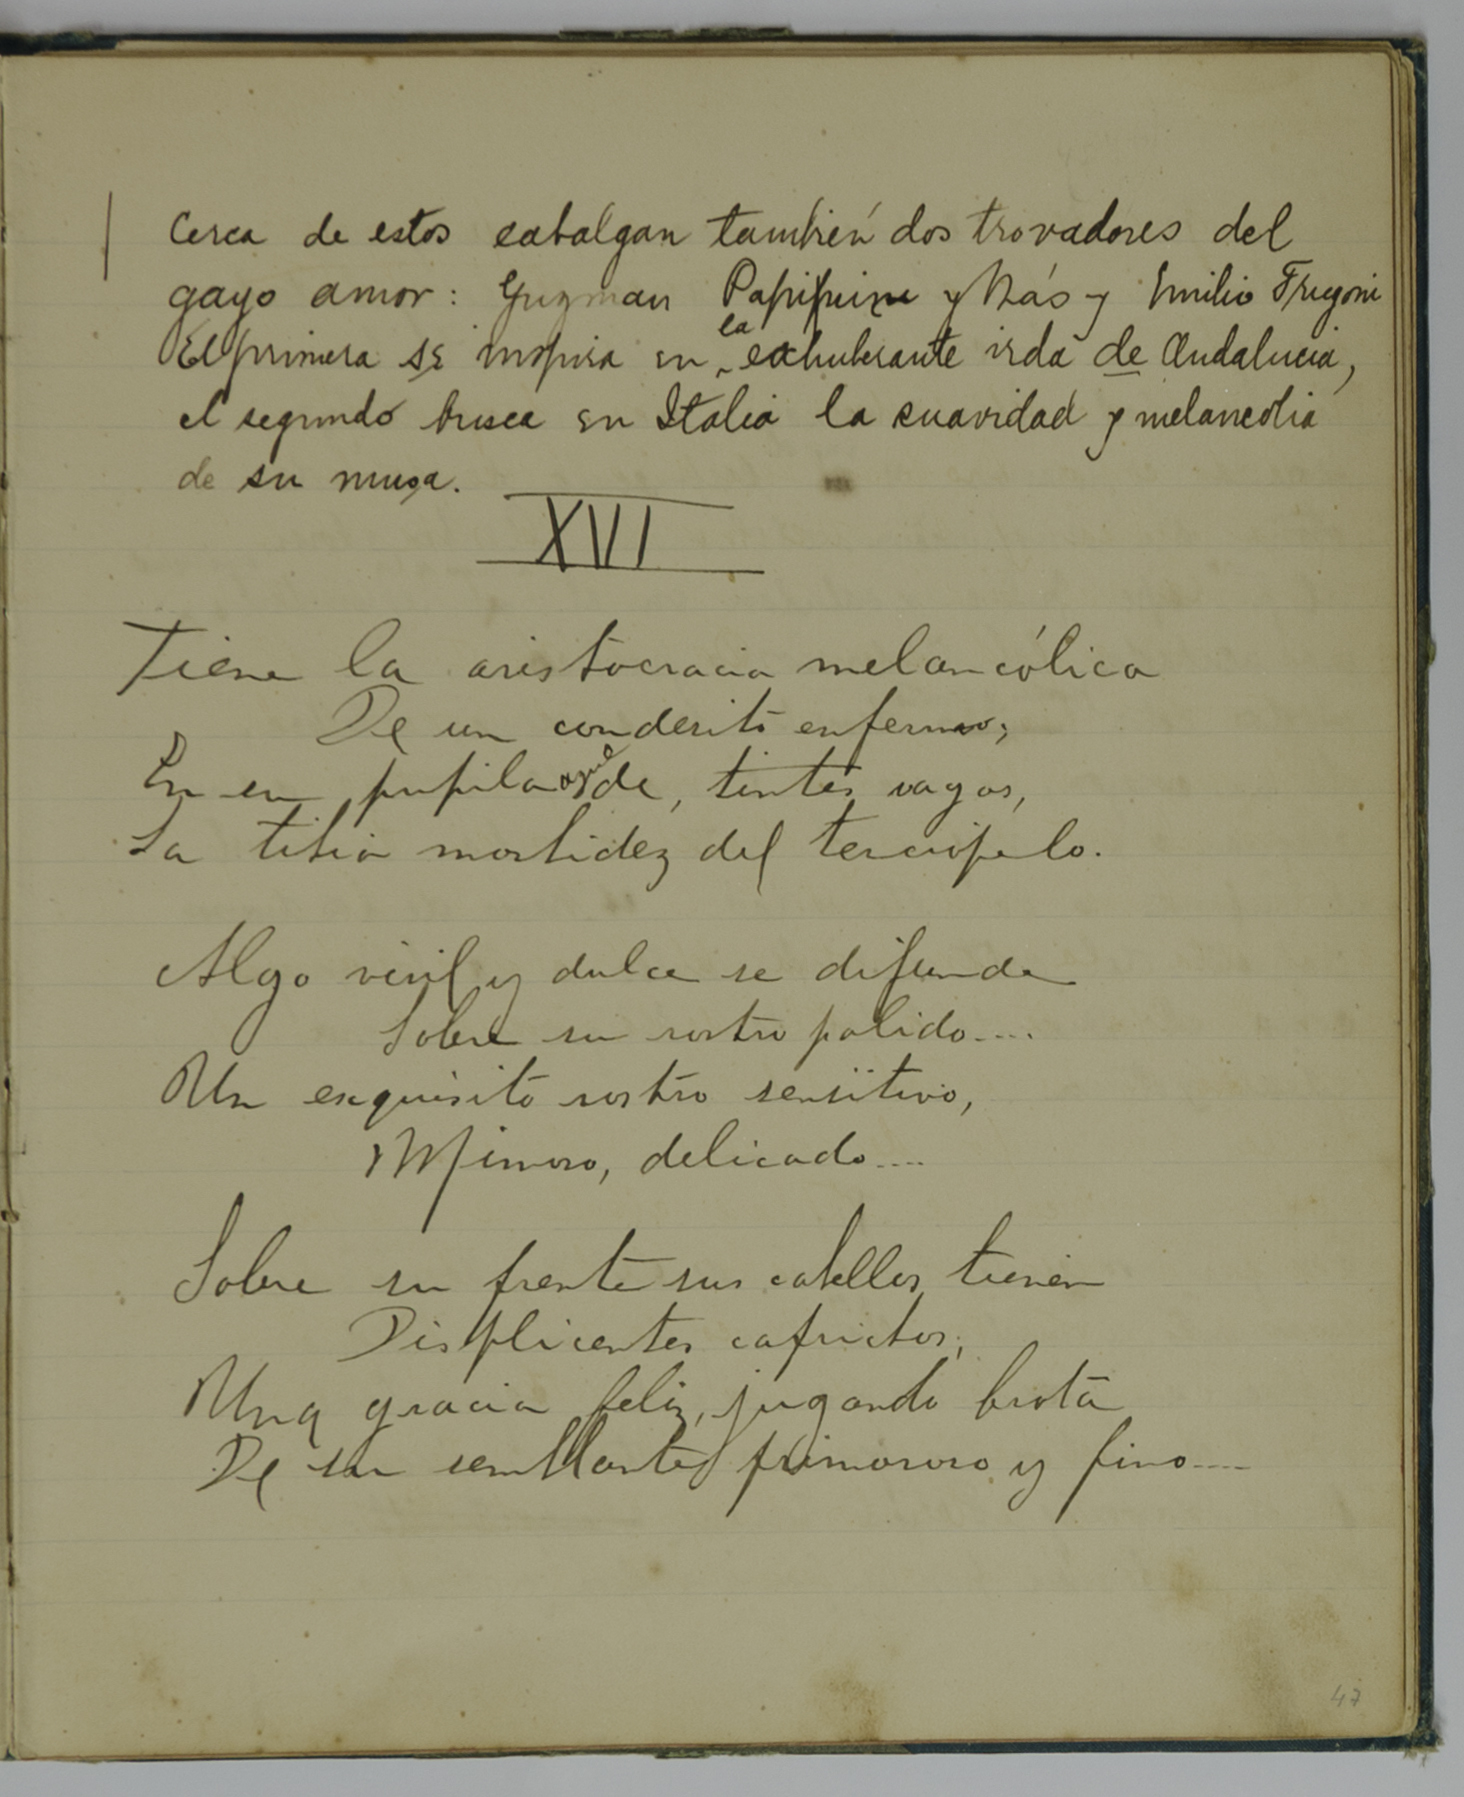 Cerca de estos cabalgan también dos trovadores del
gayo amor: Guzman Papini y Más y Emilio Frugoni
El primero se inspira en la exhuberante vida de Andalucia,
el segundo busca en Italia la suavidad y melancolia
de su musa.
XVI
Tiene la aristocracia melancólica
De un condesito enfermo;
En su pupila azul de, tintes vagos,
La tibia morbidez del terciopelo.
Algo viril y dulce se difunde
Sobre su rostro palido....
Un exquisito rostro sensitivo,
Mimoso, delicado....
Sobre su frente sus cabellos tienen
Displicentes caprichos;
Una gracia feliz, jugando brota
De su semblante primoroso y fino....
47